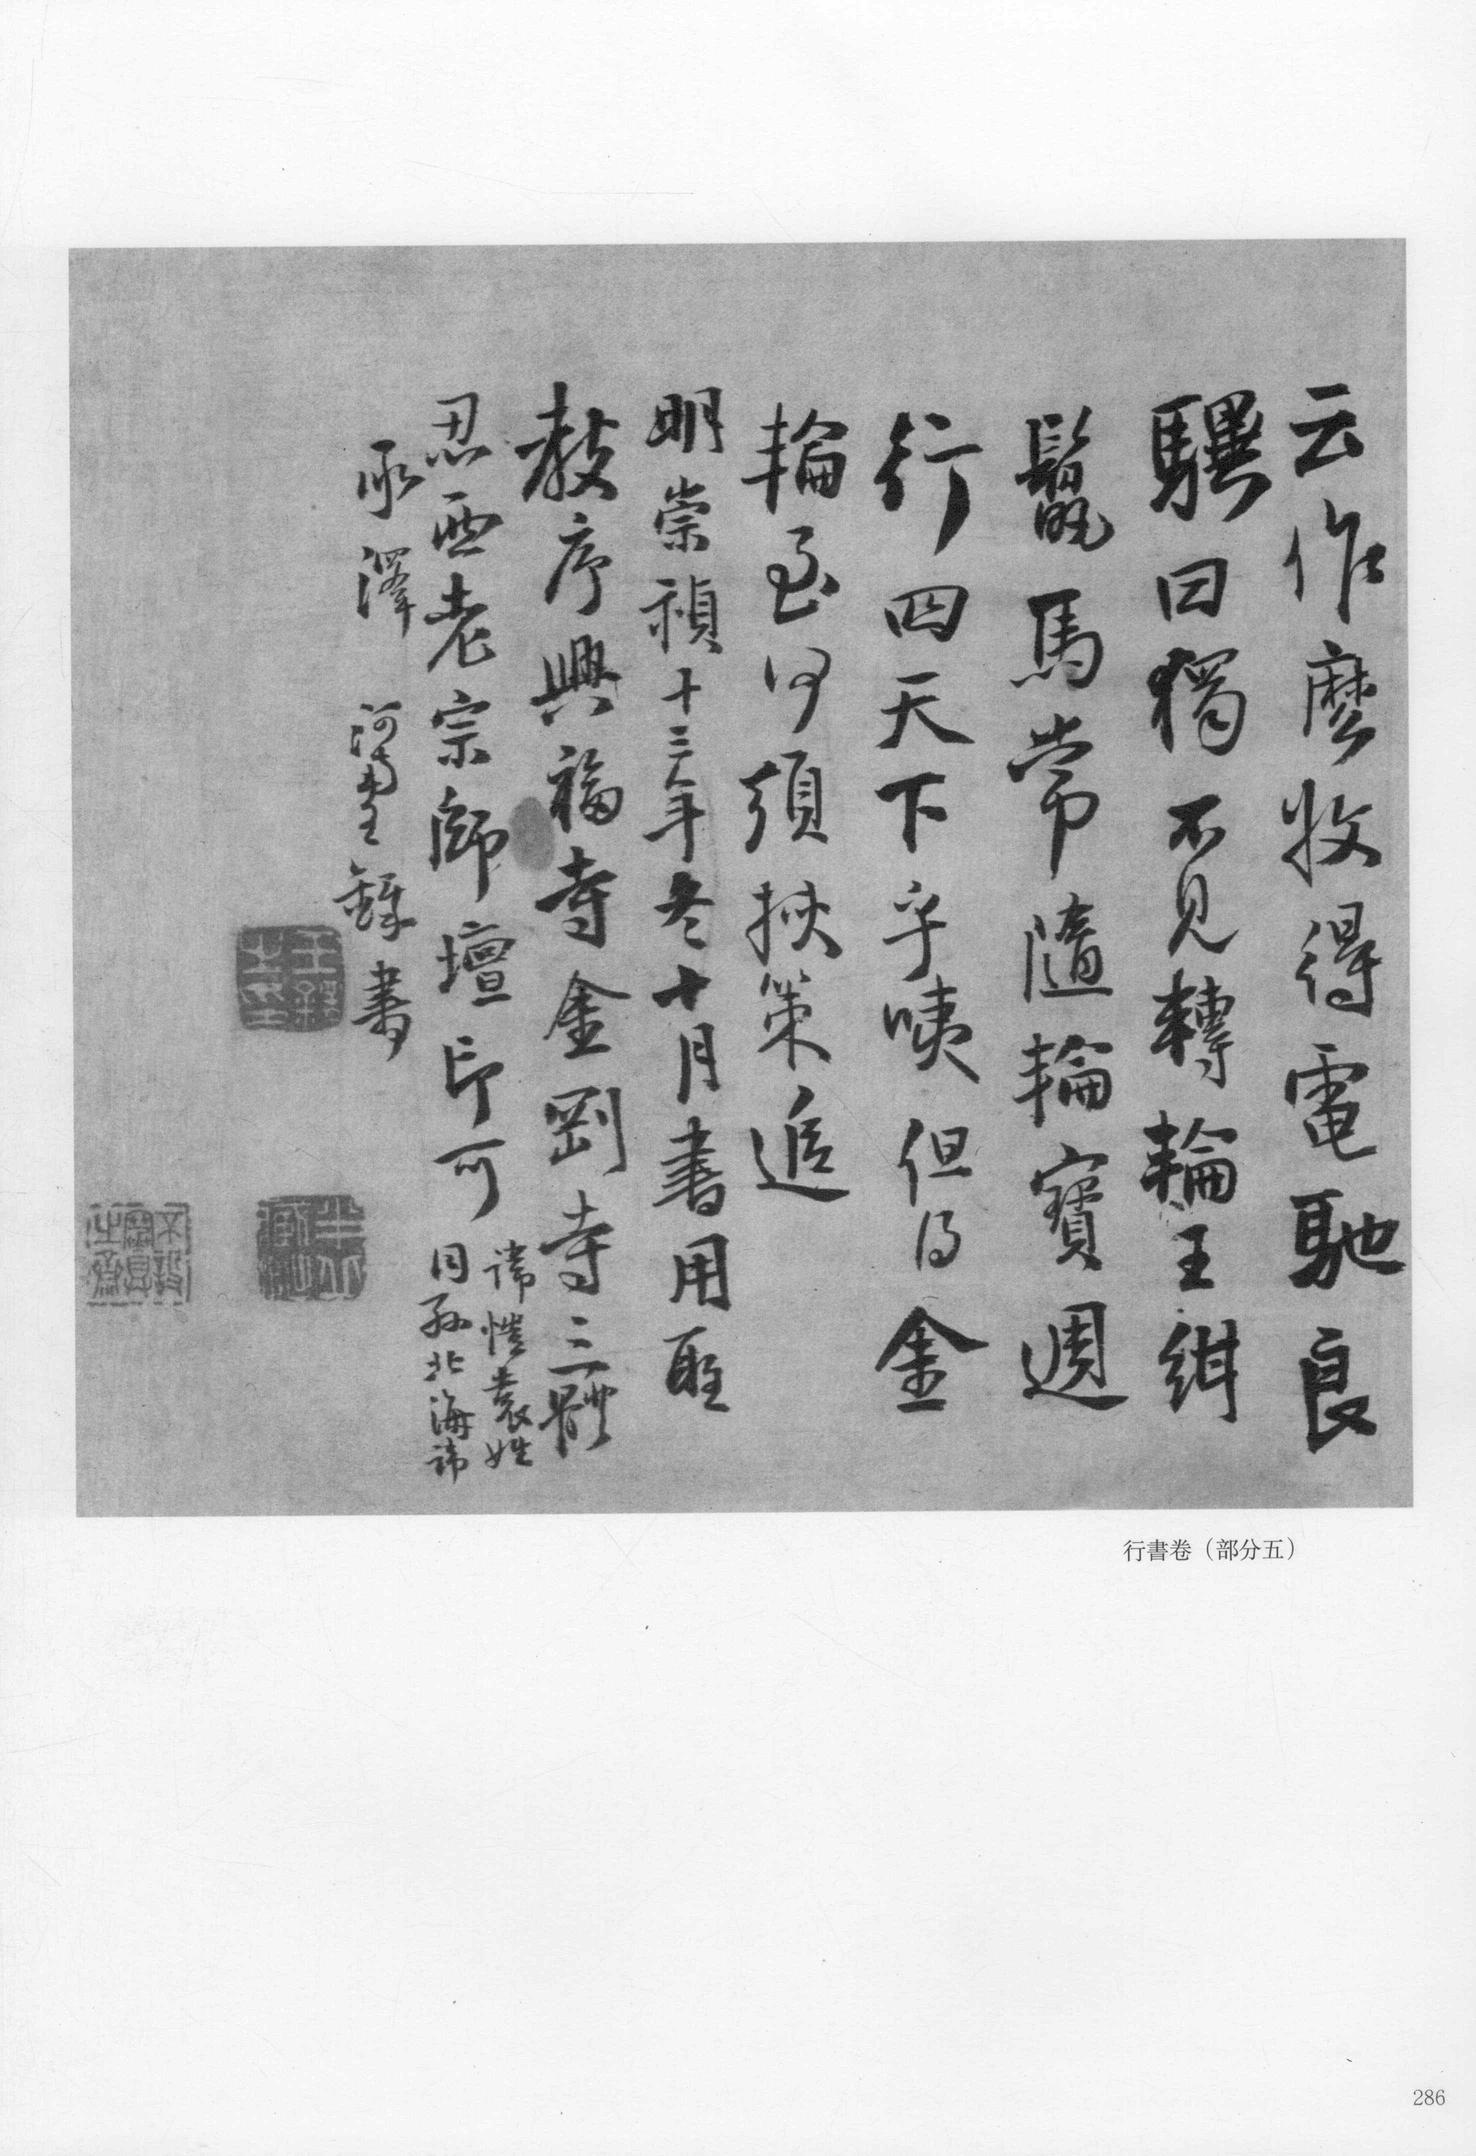 云作麼收得電馳良
驥曰獨不見轉輪王紺
鬣馬常隨輪寶週
行四天下乎咦但得金
輪至何須挾策追
明崇禎十三年冬十月書用聖
教序興福寺金剛寺三體
忍西老宗師壇印可
諱愷袁姓
同孫北海諱
承澤 河南王鐸書
行書卷（部分五）
286